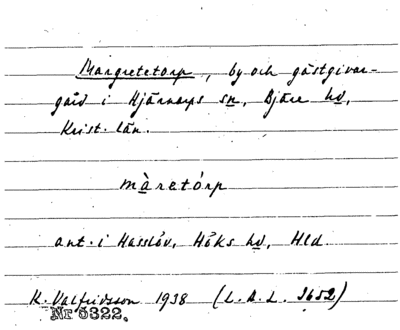 Margretetorp, by och gästgivar-
gård i Hjärnarps sn, Bjäre hd,
Krist. län.
màretórp
ant. i Hasslöv, Höks hd, Hld.
K. Valfridsson 1938 (L.A.L. 3652)
Nr 5322.